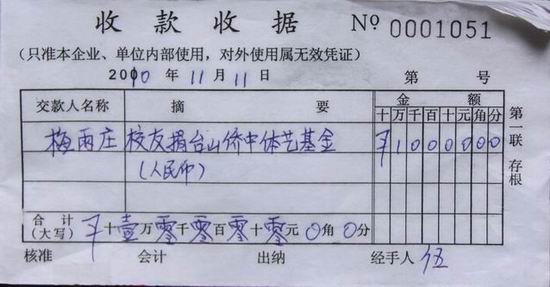 收款收据 Nº 0001051
(只准本企业、单位内部使用，对外使用属无效凭证)
2010 年 11 月 11 日 第 号
交款人名称 摘 要 金 额
十 万 千 百 十 元 角 分
梅雨庄 校友捐台山侨中体艺基金 ¥ 1 0 0 0 0 0 0
(人民币)
合 计 (大写) ¥ 十 壹 万 零 千 零 百 零 十 零 元 0 角 0 分
核准 会计 出纳 经手人 伍
第一联 存根